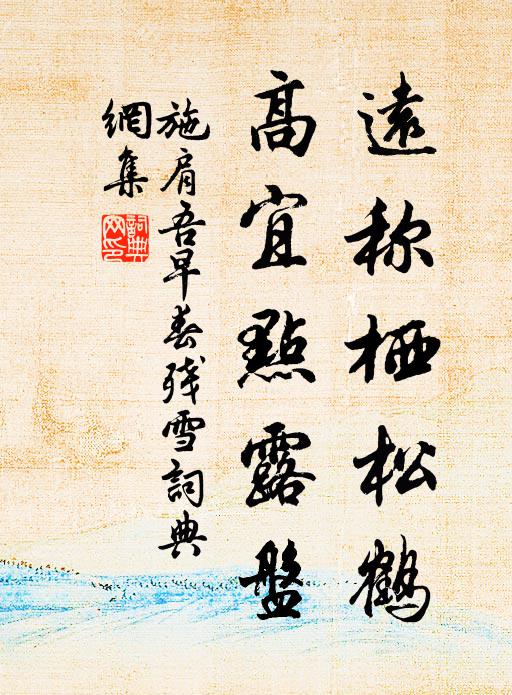 遠称栖松鶴
高宜點露盤
施肩吾早春残雪詞典
網集
詞典
网印